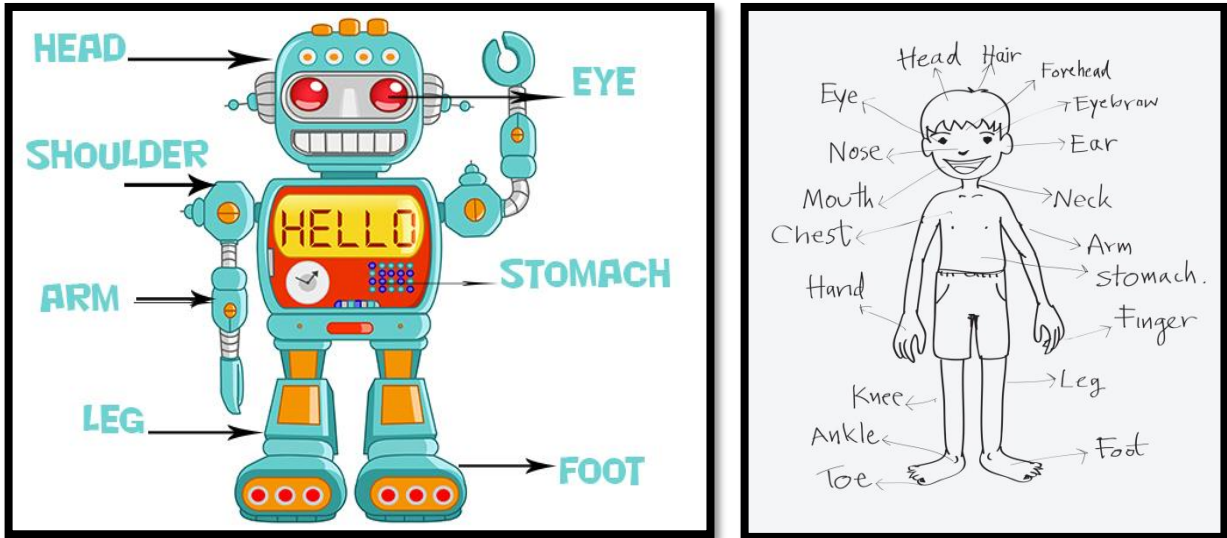 HEAD
EYE
SHOULDER
HELLO
STOMACH
ARM
LEG
FOOT
Head
Hair
Forehead
Eye
Eyebrow
Nose
Ear
Mouth
Neck
Chest
Arm
Stomach.
Hand
Finger
Leg
Knee
Ankle
Foot
Toe